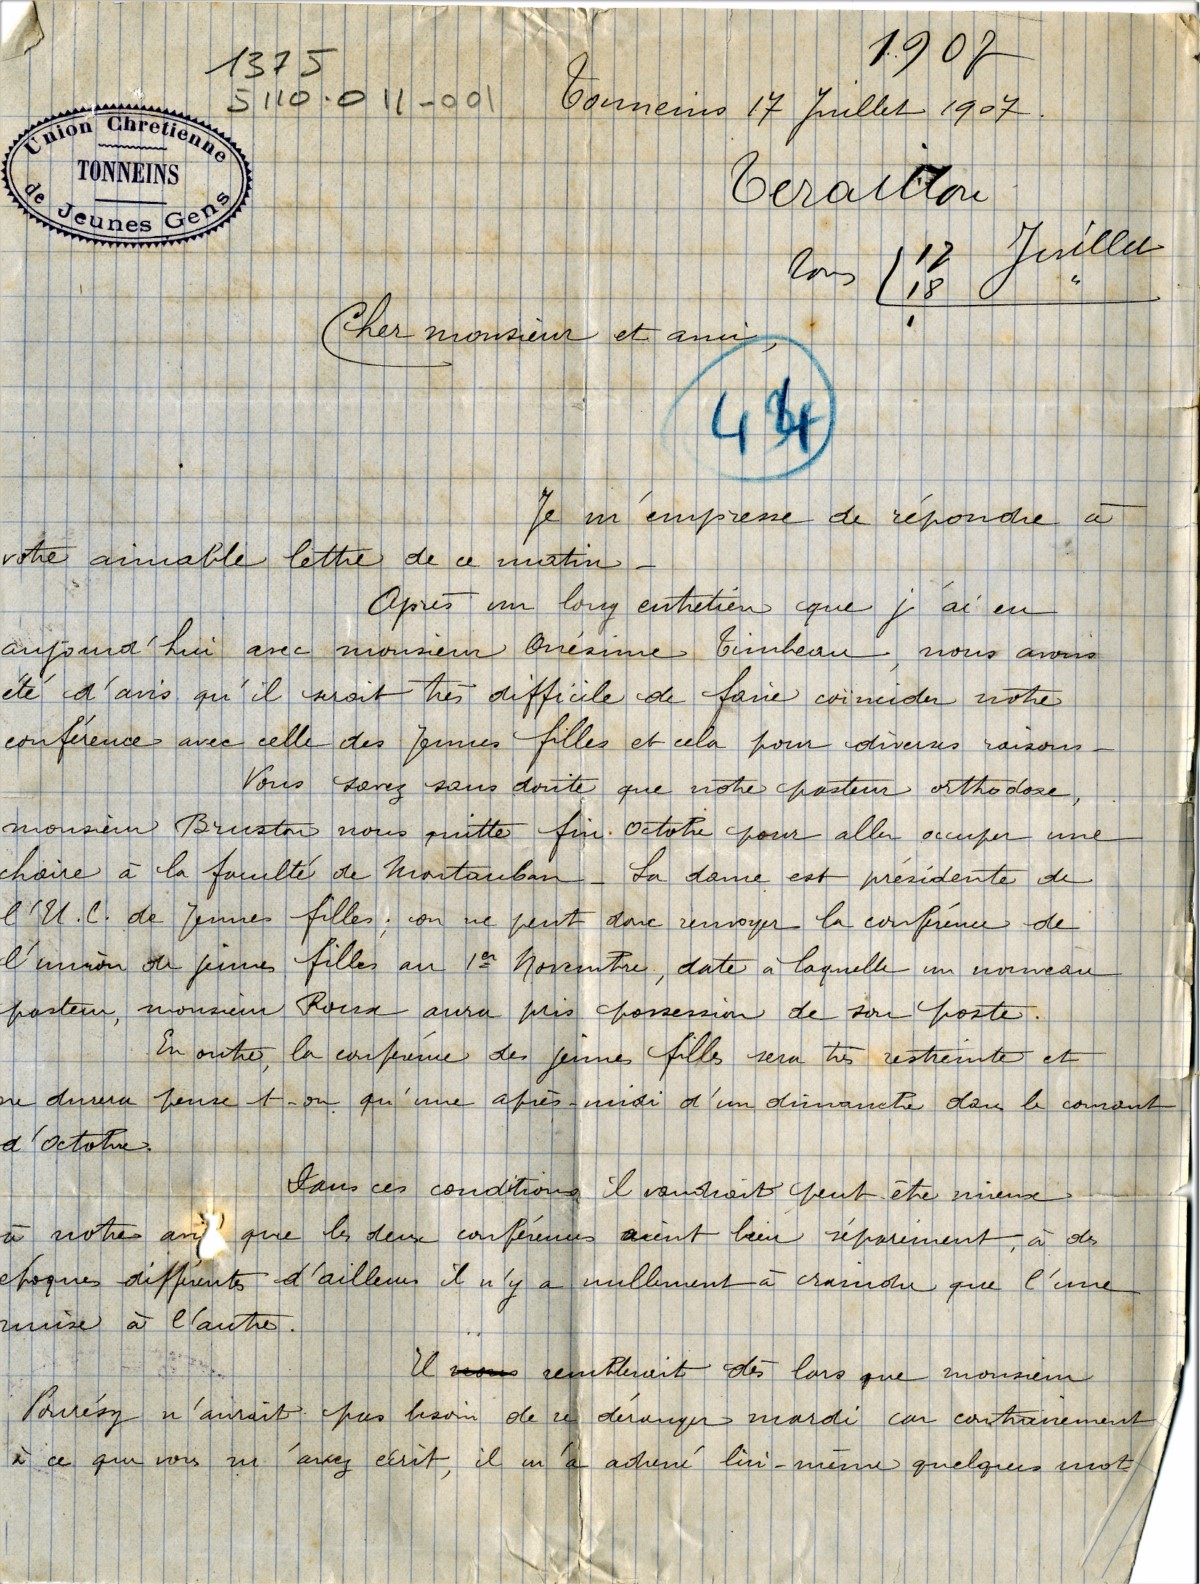 1907
1375
5110.011-001
Tonneins 17 Juillet 1907.
Union Chrétienne
TONNEINS
de Jeunes Gens
Teraillon
12 Juillet
18 "
Cher monsieur et ami,
434
Je m'empresse de répondre à
votre aimable lettre de ce matin -
Après un long entretien que j'ai eu
aujourd'hui avec monsieur Onésime Timbeau, nous avons
été d'avis qu'il serait très difficile de faire coïncider notre
conférence avec celle des Jeunes filles et cela pour diverses raisons -
Vous savez sans doute que notre pasteur orthodoxe,
monsieur Bruston nous quitte fin Octobre pour aller occuper une
chaire à la faculté de Montauban - Sa dame est présidente de
l'U.C. de Jeunes filles; on ne peut donc renvoyer la conférence de
l'union de jeunes filles au 1er Novembre, date à laquelle un nouveau
pasteur, monsieur Roux aura pris possession de son poste.
En outre, la conférence des jeunes filles sera très restreinte et
ne durera pense t-on qu'une après-midi d'un dimanche dans le courant
d'Octobre.
Dans ces conditions il vaudrait peut-être mieux
à notre avis que les deux conférences aient lieu séparément, à des
époques différentes d'ailleurs il n'y a nullement à craindre que l'une
nuise à l'autre.
Il nous semblerait dès lors que monsieur
Pourésy n'aurait pas besoin de se déranger mardi car contrairement
à ce que vous m'avez écrit, il m'a adressé lui-même quelques mot